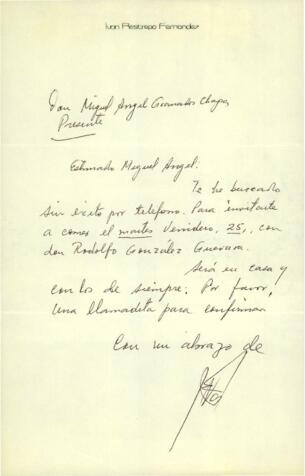 Ivan Restrepo Fernandez
Don Miguel Angel Granados Chapa
Presente
Estimado Miguel Angel:
Te he buscado
sin éxito por teléfono. Para invitarte
a comer el martes venidero, 25, con
don Rodolfo González Guevara.
Será en casa y
con los de siempre. Por favor,
una llamadita para confirmar
Con un abrazo de